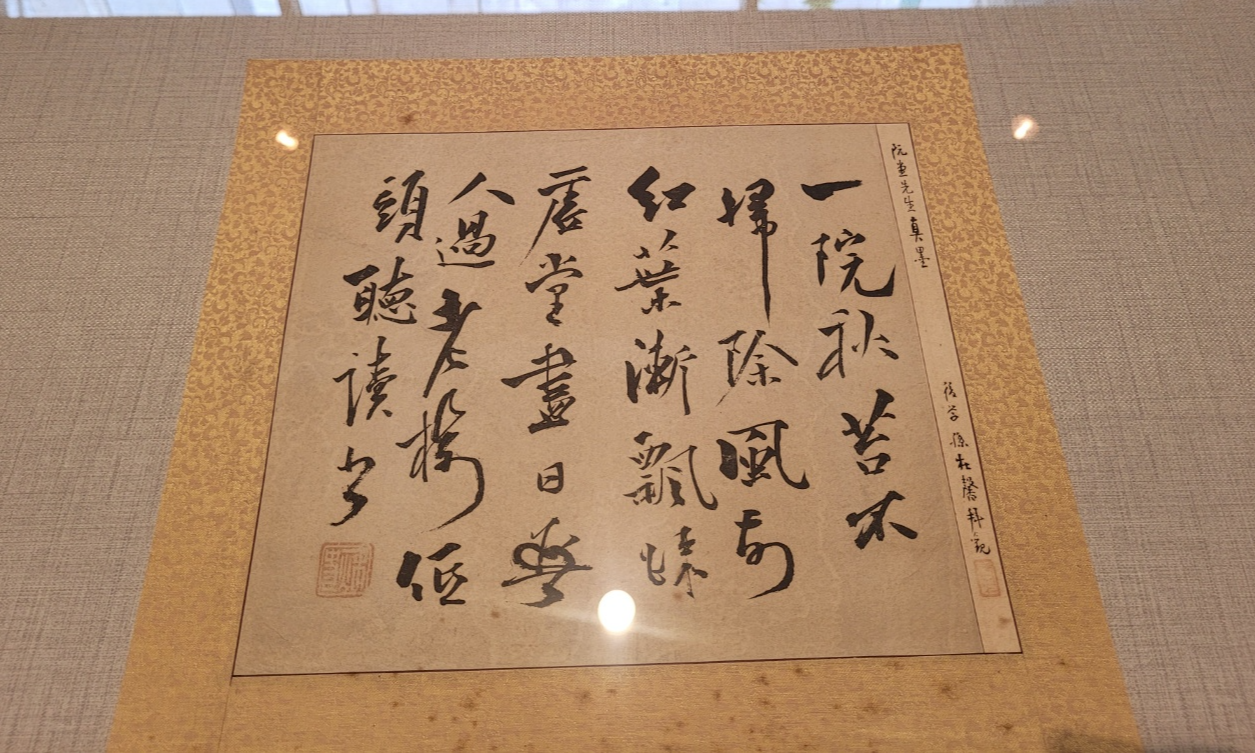 阮堂先生真墨
後學孫在馨拜觀
一院秋苔不
掃除風前
紅葉漸飄疎
虛堂盡日無
人過老樹低
頭聽讀書